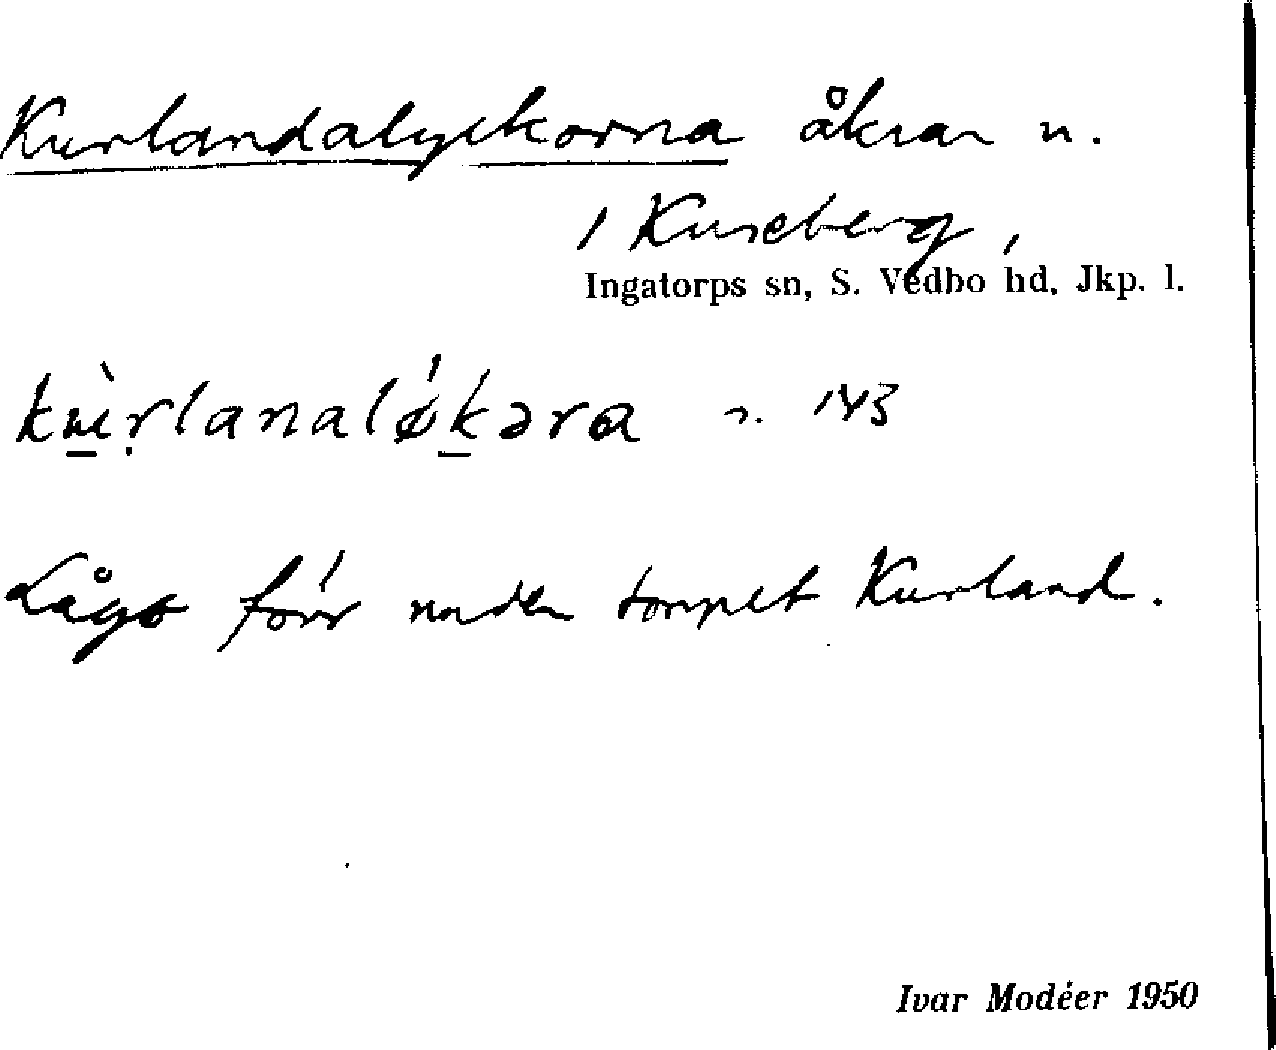 Kurlandalyckorna åkrar n.
/ Kuseberg,
Ingatorps sn, S. Vedbo hd, Jkp. l.
kùrlanaløkəra n. 143
Lågo förr under torpet Kurland.
Ivar Modéer 1950